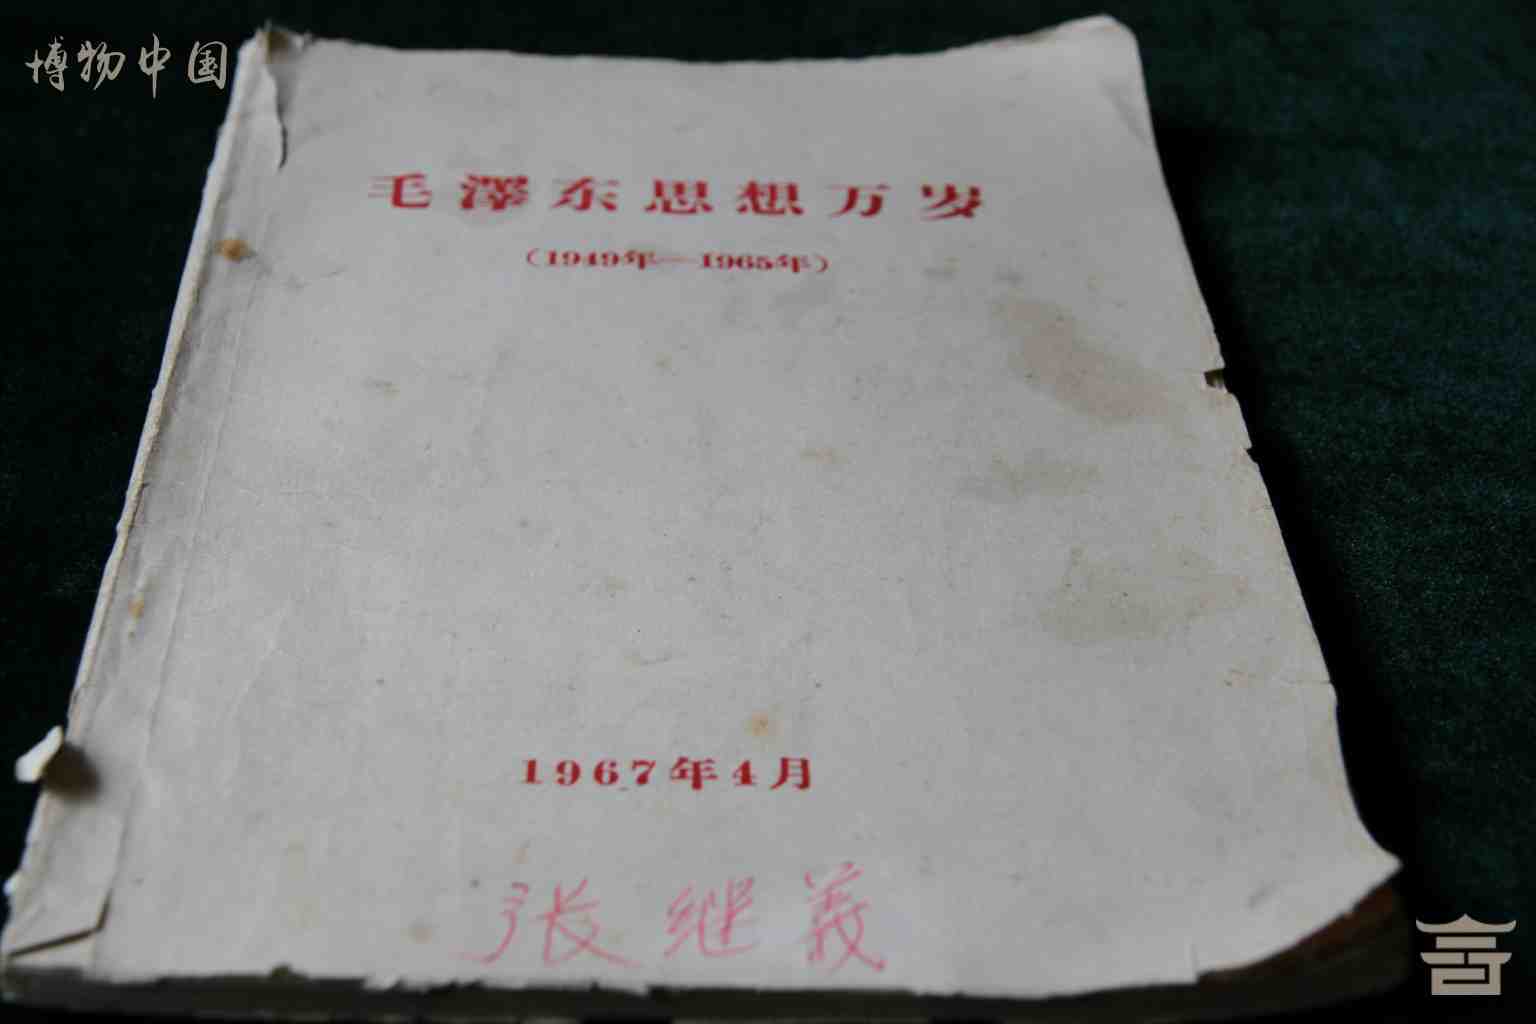 博物中国
毛澤东思想万岁
(1949年—1965年)
1967年4月
张继義